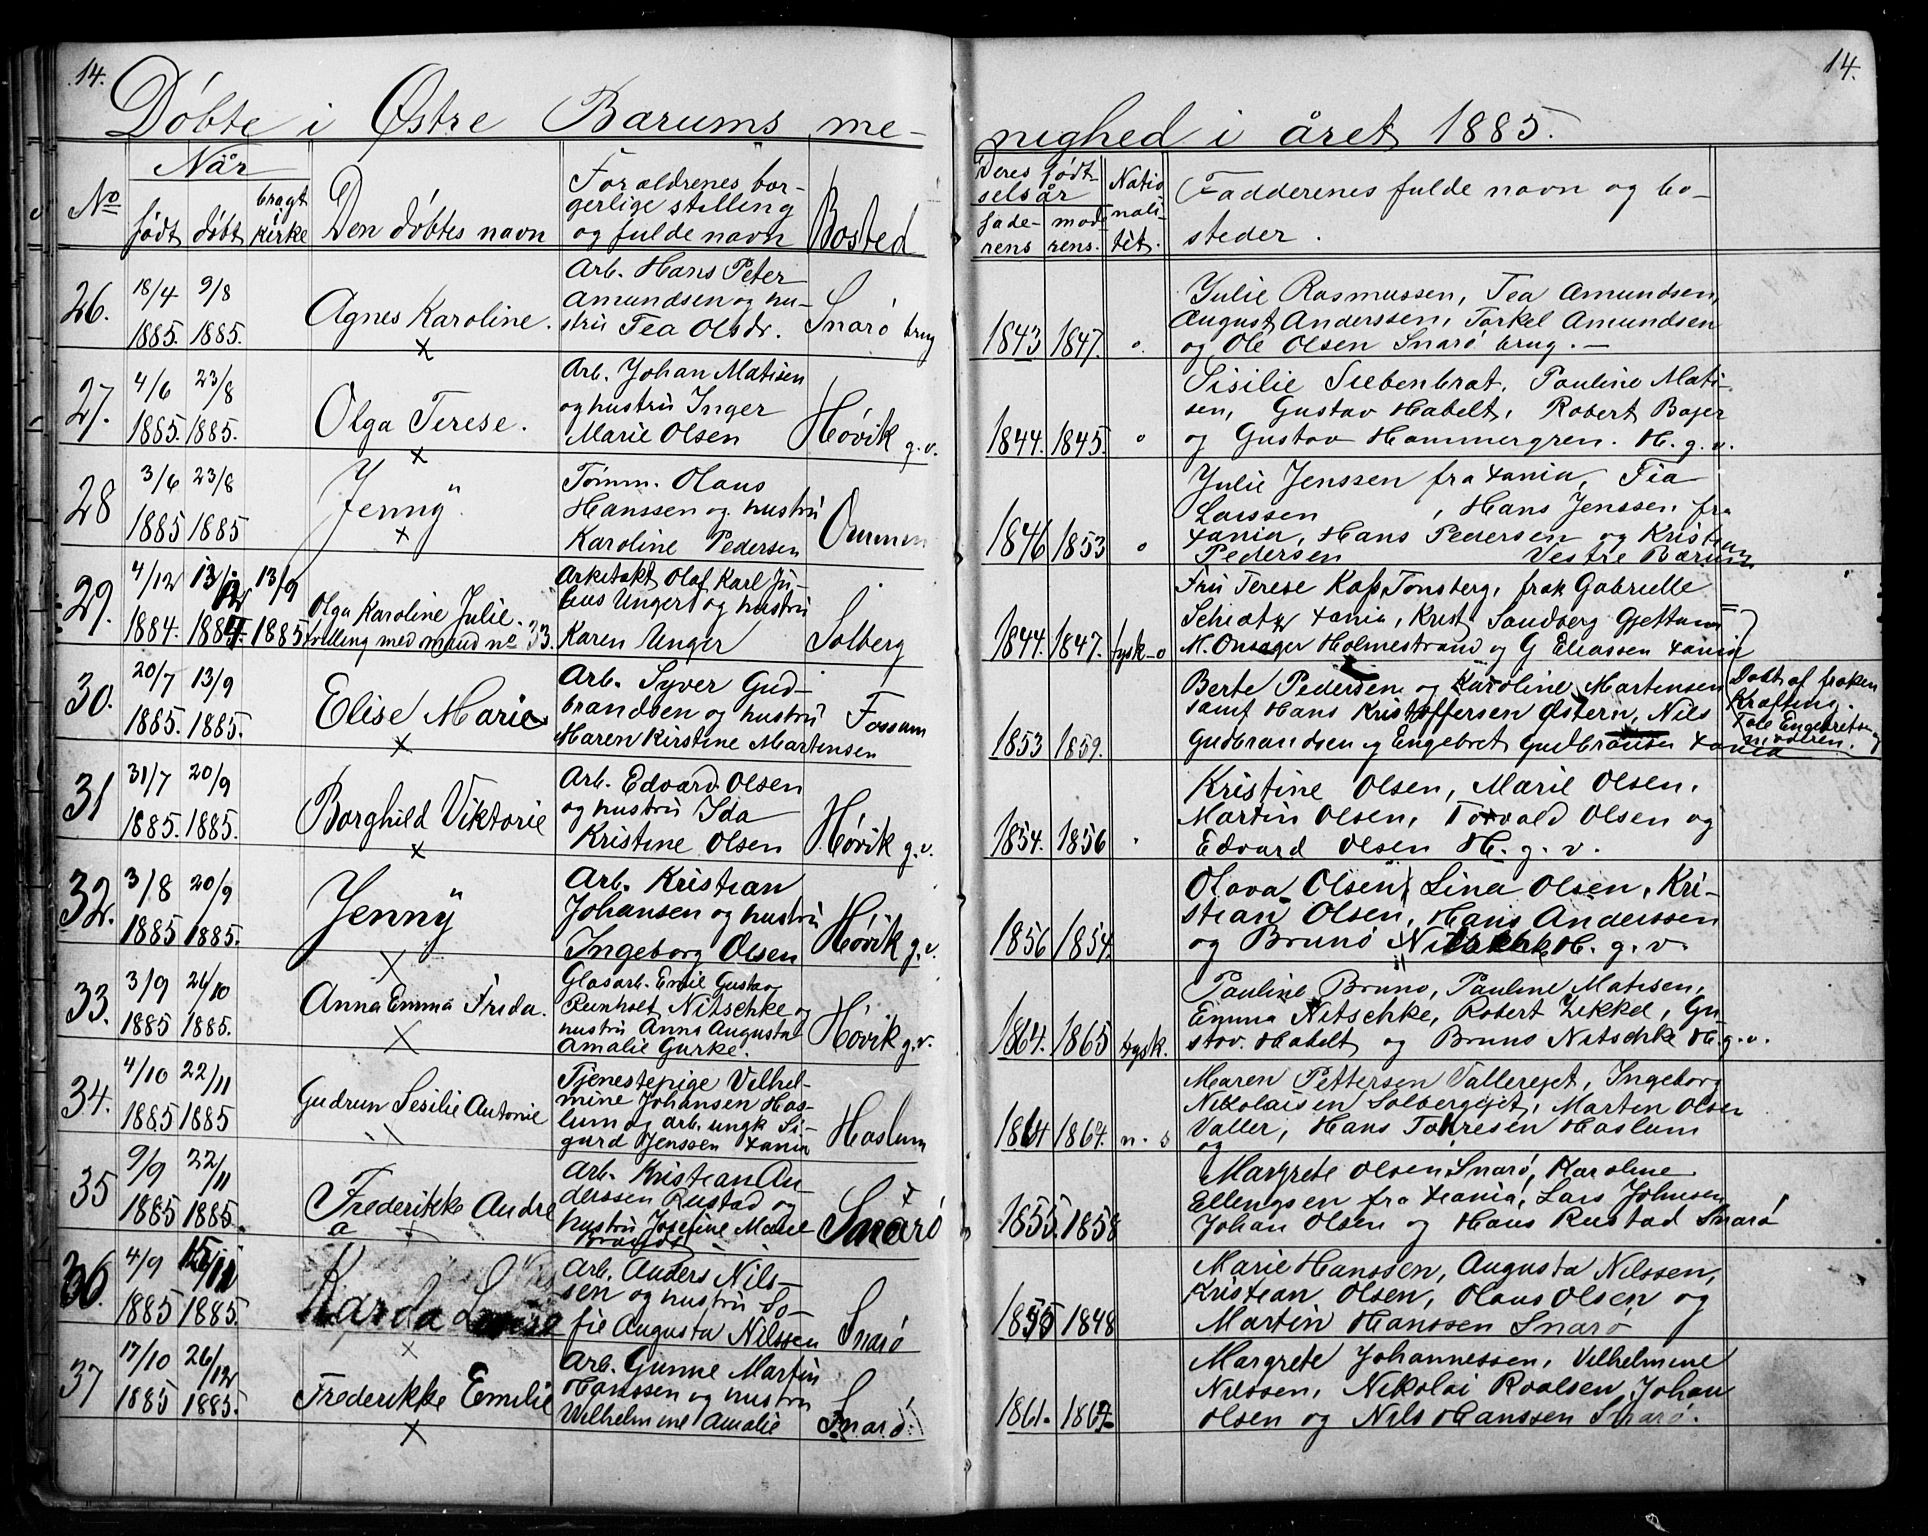 14.
14.
Døbte i Østre Bærums me-
nighed i året 1885.
No
Når
født
døbt
bragt kirke
Den døbtes navn
Forældrenes bor-
gerlige stilling
og fulde navn
Bosted
Deres født-
selsår
fade-
rens
mod
rens.
Natio
nali-
tèt.
Fadderenes fulde navn og bo-
steder.
26.
18/4 9/8
1885. 1885.
Agnes Karoline.
Arb. Hans Peter
Amundsen og hu-
stru Tea Olsdr.
Snarø brug
1843 1847. o.
Julie Rasmussen, Tea Amundsen,
August Anderssen, Torkel Amundsen
og Ole Olsen Snarø brug. —
27.
4/6 23/8
1885. 1885.
Olga Terese.
Arb. Johan Matisen
og hustru Inger
Marie Olsen
Høvik g.v.
1844. 1845. o
Sisilie Siebenbrat, Pauline Mati-
sen, Gustav Habelt, Robert Bajer
og Gustav Hammergren. H. g. v.
28
3/6 23/8
1885 1885
Jenny
Tømm. Olaus
Hanssen og hustru
Karoline Pedersen
1846 1853 o
Julie Jenssen fra Xania, Tia
Larssen , Hans Jenssen fra
Xania, Hans Pedersen og Kristian
Pedersen Vestre Bærum
29.
4/12 13/9
1884. 1885
Olga Karoline Julie.
tvilling med mand no 33.
Arkitekt Olaf Karl Ju-
lius Unger og hustru
Karen Unger
Solberg
1844. 1847. tysk-o
Fru Terese Kop Tønsberg, frøk Gabrielle
Schiøtz Xania, Krist. Sandberg Gjettum
M. Onsager Holmestrand og G Eliassen Xania
30.
20/7 13/9
1885. 1885.
Elise Marie
Arb. Syver Gud-
brandsen og hustru
Maren Kirstine Martensen
Fossum
1853 1859.
Berte Pedersen og Karoline Martensen
samt Hans Kristoffersen Østern, Nils
Gudbrandsen og Engebret Gudbransen Xania
Døbt af frøken
Krafting.
Tole Engebretsen og
moderen.
31
31/7 20/9
1885. 1885.
Borghild Viktorie
Arb. Edvard Olsen
og hustru Ida
Kristine Olsen
Høvik g.v.
1854. 1856
Kristine Olsen, Marie Olsen,
Martin Olsen, Torvald Olsen og
Edvard Olsen H. g. v.
32.
3/8 20/9
1885 1885.
Jenny
Arb. Kristian
Johansen og hustru
Ingeborg Olsen
Høvik g.v.
1856 1854.
Olava Olsen, Lina Olsen, Kri-
stian Olsen, Hans Anderssen
og Bruno H. g. v.
33.
3/9 26/10
1885 1885.
Anna Emma Frida.
Glasarb. Emil Gustav
Reinholt Nitschke og
hustru Anna Augusta
Amalie Gurke.
Høvik g.v.
1864. 1865 tysk.
Pauline Bruno, Pauline Matisen,
Emma Nitschke, Robert Zekkel, Gu
stav. Habelt og Bruno Nitschke H. g. v.
34.
4/10 22/11
1885 1885
Gudrun Sesilie Antonie
Tjenestepige Vilhel-
mine Johansen Has-
lum og arb. ungk Si-
gurd Jenssen Xania
Haslum
1864 1864. n. s
Maren Pettersen Vallerejet, Ingeborg
Nikolaisen Solbergejet, Marten Olsen
Valler, Hans Haslum
og
35
9/9 22/11
1885 1885.
Frederikke Andre
a
Arb. Kristian An
derssen Rustad og
hustru Josefine Marie
Brandt
Snarø
1855. 1858
Margrete Olsen Snarø, Karoline
Ellengsen fra Xania, Lars Johnsen
Johan Olsen og Hans Rustad Snarø
36.
4/9
1885 1885.
Karda
Arb. Anders Nils-
sen og hustru So-
fie Augusta Nilssen
Snarø
1855 1848
Marie Hanssen, Augusta Nilssen,
Kristian Olsen, Olaus Olsen og
Martin Hanssen Snarø
37
17/10 26/12
1885 1885.
Frederikke Emilie
Arb. Gunne Martin
Hanssen og hustru
Vilhelmine Amalie
Snarø
1861.
Margrete Johannessen, Vilhelmine
Nilssen, Nikolai Roalsen, Johan
Olsen og Nils Hanssen Snarø.